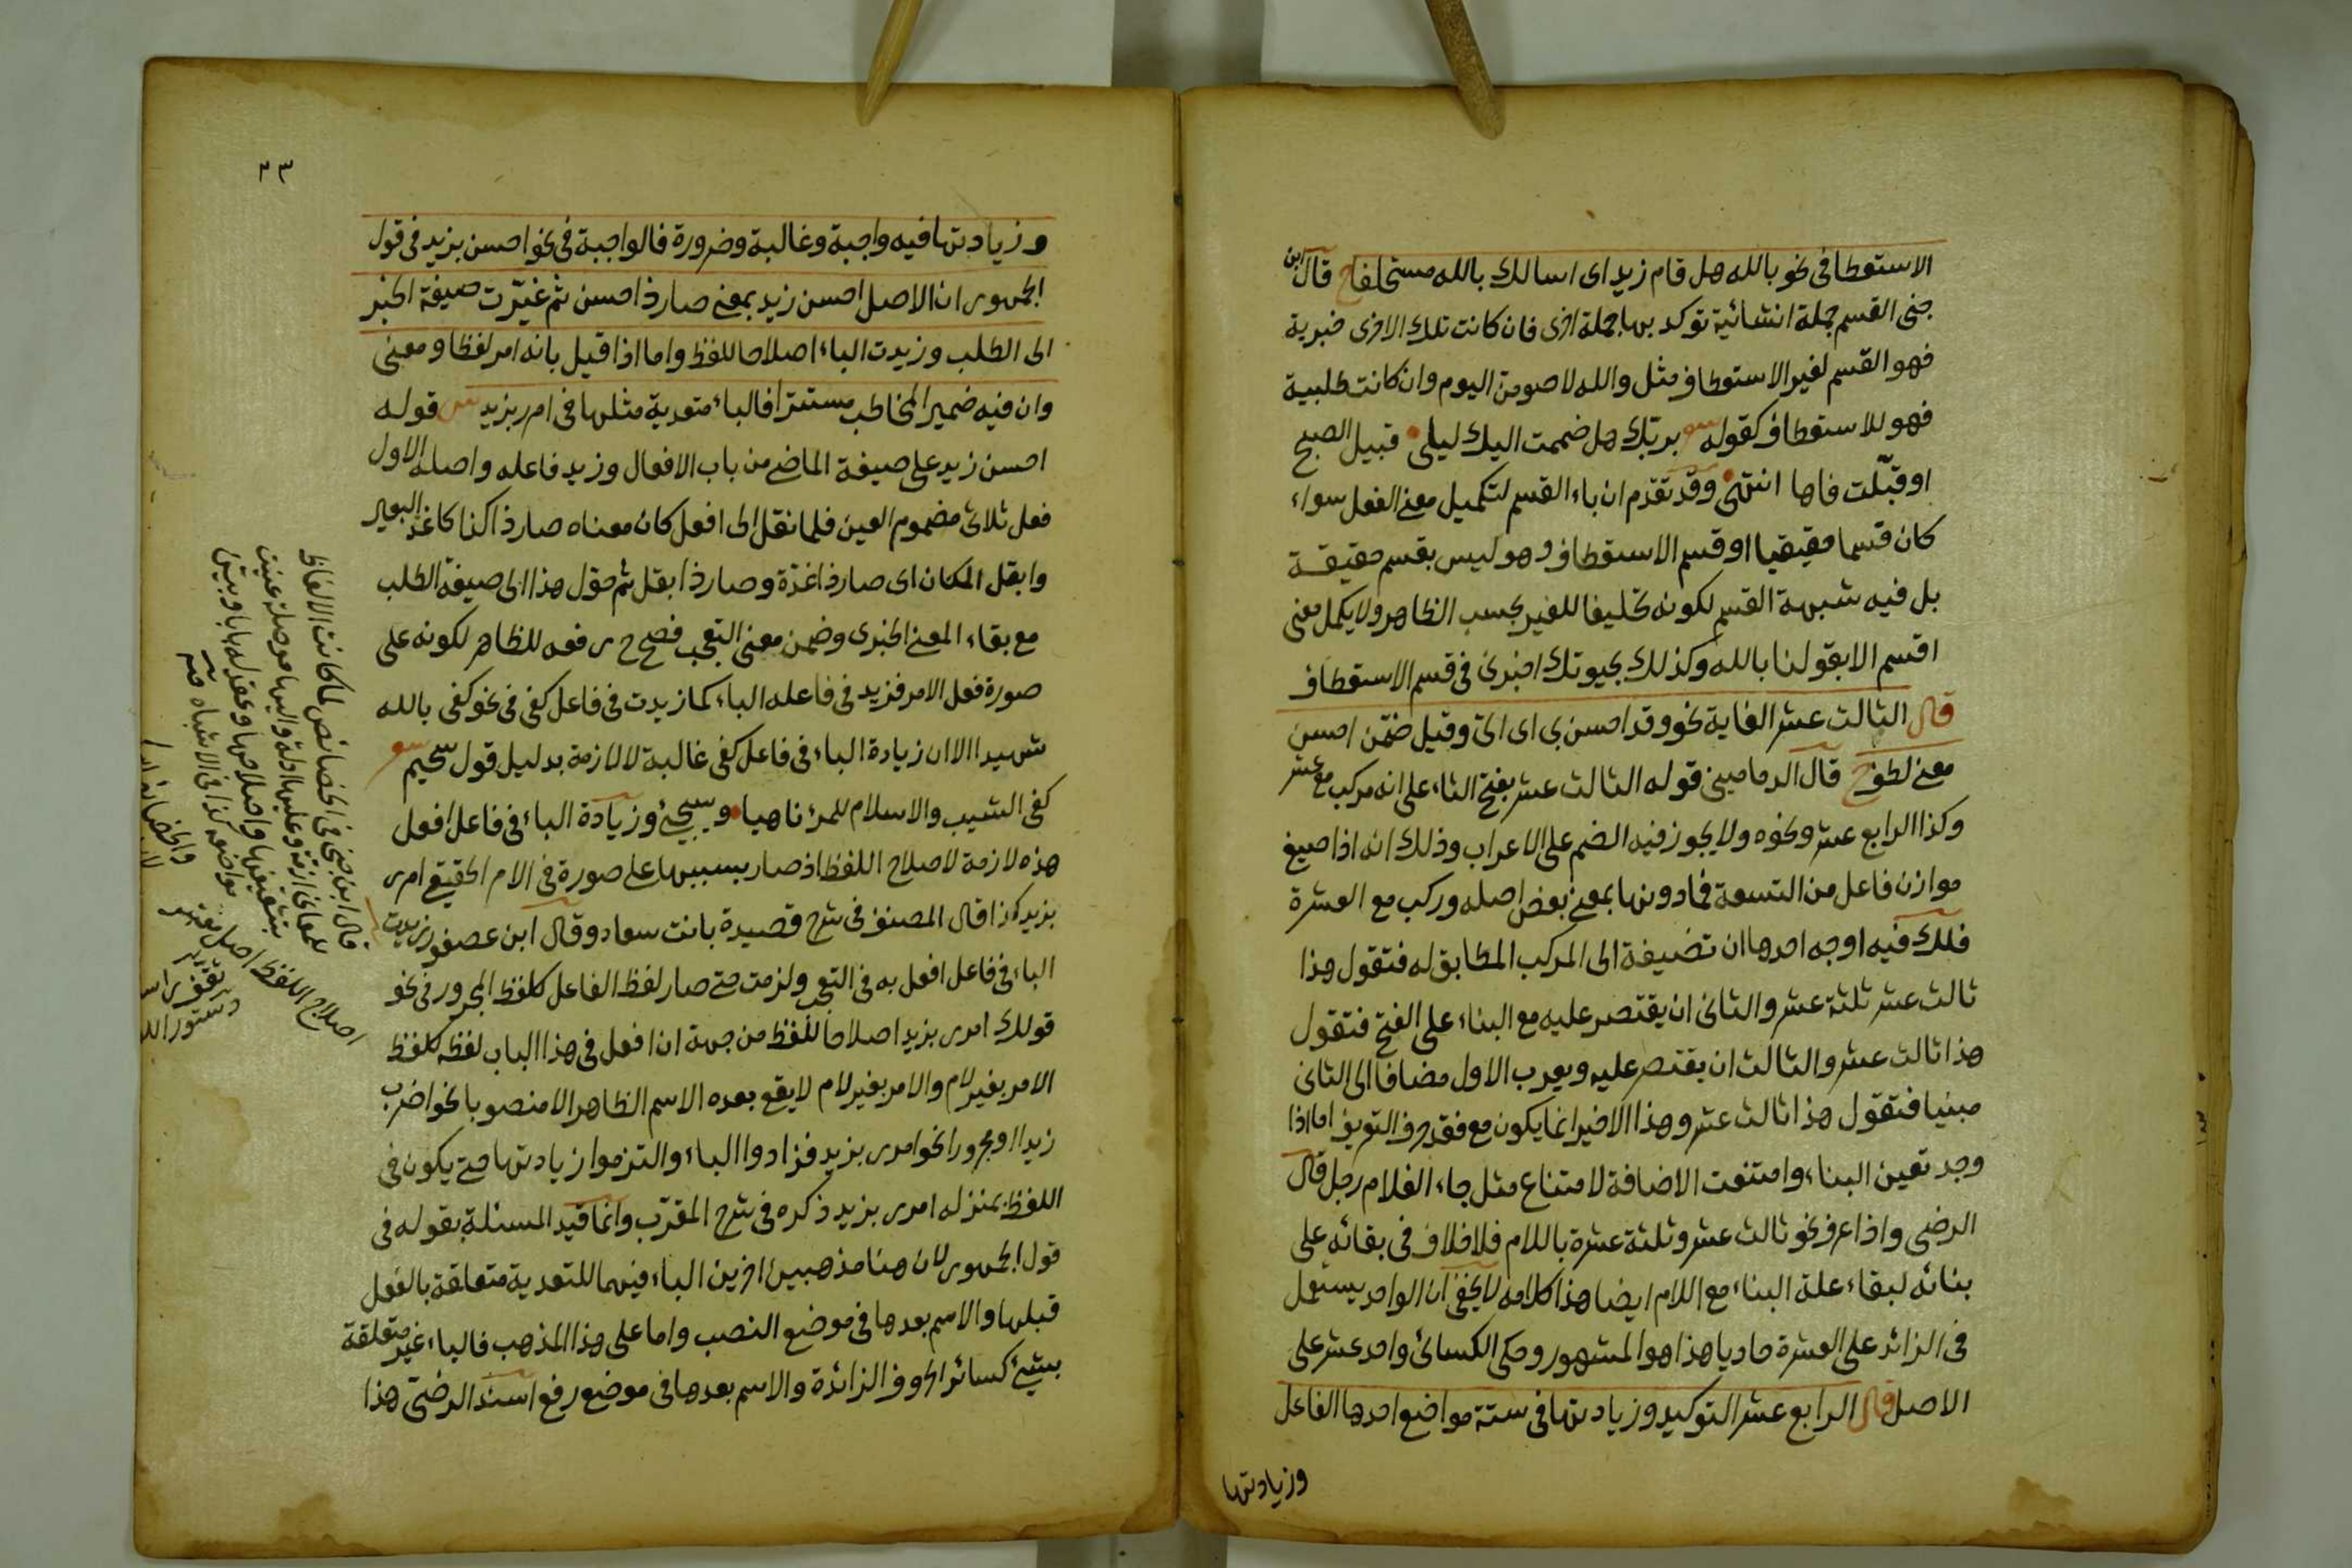 الاستعطافى نحو بالله هل قام زيد اى اسالك بالله مستحلفا ح قال ابن
جنى القسم جملة انشائية توكد بها جملة اخرى فان كانت تلك الاخرى خبرية
فهو القسم لغير الاستعطاف مثل والله لاصومن اليوم وان كانت طلبية
فهو للاستعطاف كقوله بربك هل ضممت اليك ليلى قبيل الصبح
او قبّلت فاها انتهى وقد تقدم ان باء القسم لتكميل معنى الفعل سواء
كان قسما حقيقيا او قسم الاستعطاف وهو ليس بقسم حقيقة
بل فيه شبهة القسم لكونه تحليفا للغير بحسب الظاهر ولا يكمل معنى
اقسم الا بقولنا بالله وكذلك بحيوتك اخبرنى فى قسم الاستعطاف
قال الثالث عشر الغاية نحو وقد احسن بى اى الىّ وقيل ضمّن احسن
معنى لطف ح قال الدمامينى قوله الثالث عشر بفتح الثاء على انه مركب مع عشر
وكذا الرابع عشر ونحوه ولا يجوز فيه الضم على الاعراب وذلك انه اذا صيغ
موازن فاعل من التسعة فمادونها بمعنى بعض اصله وركب مع العشرة
فلك فيه اوجه احدها ان تضيفه الى المركب المطابق له فتقول هذا
ثالث عشر ثلثة عشر والثانى ان يقتصر عليه مع البناء على الفتح فتقول
هذا ثالث عشر والثالث ان يقتصر عليه ويعرب الاول مضافا الى الثانى
مبنيا فتقول هذا ثالث عشر وهذا الاخير انما يكون مع فقد حرف التعريف اما اذا
وجد تعين البناء وامتنعت الاضافة لامتناع مثل جاء الغلام رجل قال
الرضى واذا عرف نحو ثالث عشر وثلثة عشرة باللام فلا خلاف فى بقائه على
بنائه لبقاء علة البناء مع اللام ايضا هذا كلامه لا يخفى ان الواحد يستعمل
فى الزائد على العشرة حاديا هذا هو المشهور وحكى الكسائى واحد عشر على
الاصل قال الرابع عشر التوكيد وزيادتها فى ستة مواضع احدها الفاعل
وزيادتها
٣٣
وزيادتها فيه واجبة وغالبة وضرورة فالواجبة فى نحو احسن بزيد فى قول
الجمهور ان الاصل احسن زيد بمعنى صار ذا حسن ثم غيّرت صيغة الخبر
الى الطلب وزيدت الباء اصلاحا للفظ واما اذا قيل بانه امر لفظا ومعنى
وان فيه ضمير المخاطب مستترا فالباء متعدية مثلها فى امرر بزيد س قوله
احسن زيد على صيغة الماضى من باب الافعال وزيد فاعله واصله الاول
فعل ثلاثى مضموم العين فلما نقل الى افعل كان معناه صار ذا كذا كاغد البعير
وابقل المكان اى صار ذا غدّة وصار ذا بقل ثم حوّل هذا الى صيغة الطلب
مع بقاء المعنى الخبرى وضمن معنى التعجب فصح ح رفعه للظاهر لكونه على
صورة فعل الامر فزيد فى فاعله الباء كما زيدت فى فاعل كفى فى نحو كفى بالله
شهيدا الا ان زيادة الباء فى فاعل كفى غالبة لا لازمة بدليل قول سحيم
كفى الشيب والاسلام للمرء ناهيا وسيجئ وزيادة الباء فى فاعل افعل
هذه لازمة لاصلاح اللفظ اذ صار بسببها على صورة فى الامر الحقيقى امرر
بزيد كذا قال المصنف فى شرح قصيدة بانت سعاد وقال ابن عصفور زيدت
الباء فى فاعل افعل به فى التعجب ولزمت حتى صار لفظ الفاعل كلفظ المجرور فى نحو
قولك امرر بزيد اصلاحا للفظ من جهة ان افعل فى هذا الباب لفظه كلفظ
الامر بغير لام والامر بغير لام لا يقع بعده الاسم الظاهر الا منصوبا نحو اضرب
زيدا او مجرورا نحو امرر بزيد فزادوا الباء والتزموا زيادتها حتى يكون فى
اللفظ بمنزلة امرر بزيد ذكره فى شرح المقرّب وانما قيد المسئلة بقوله فى
قول الجمهور لان هنا مذهبين اخرين الباء فيهما للتعدية متعلقة بالفعل
قبلها والاسم بعدها فى موضع النصب واما على هذا المذهب فالباء غير متعلقة
بشئ كسائر الحروف الزائدة والاسم بعدها فى موضع رفع اسند الرضىّ هذا
قال ابن جنى فى الخصائص لما كانت الالفاظ
للمعانى ازمّة وعليها ادلة واليها موصلة
اصلاح اللفظ اصل
دستور